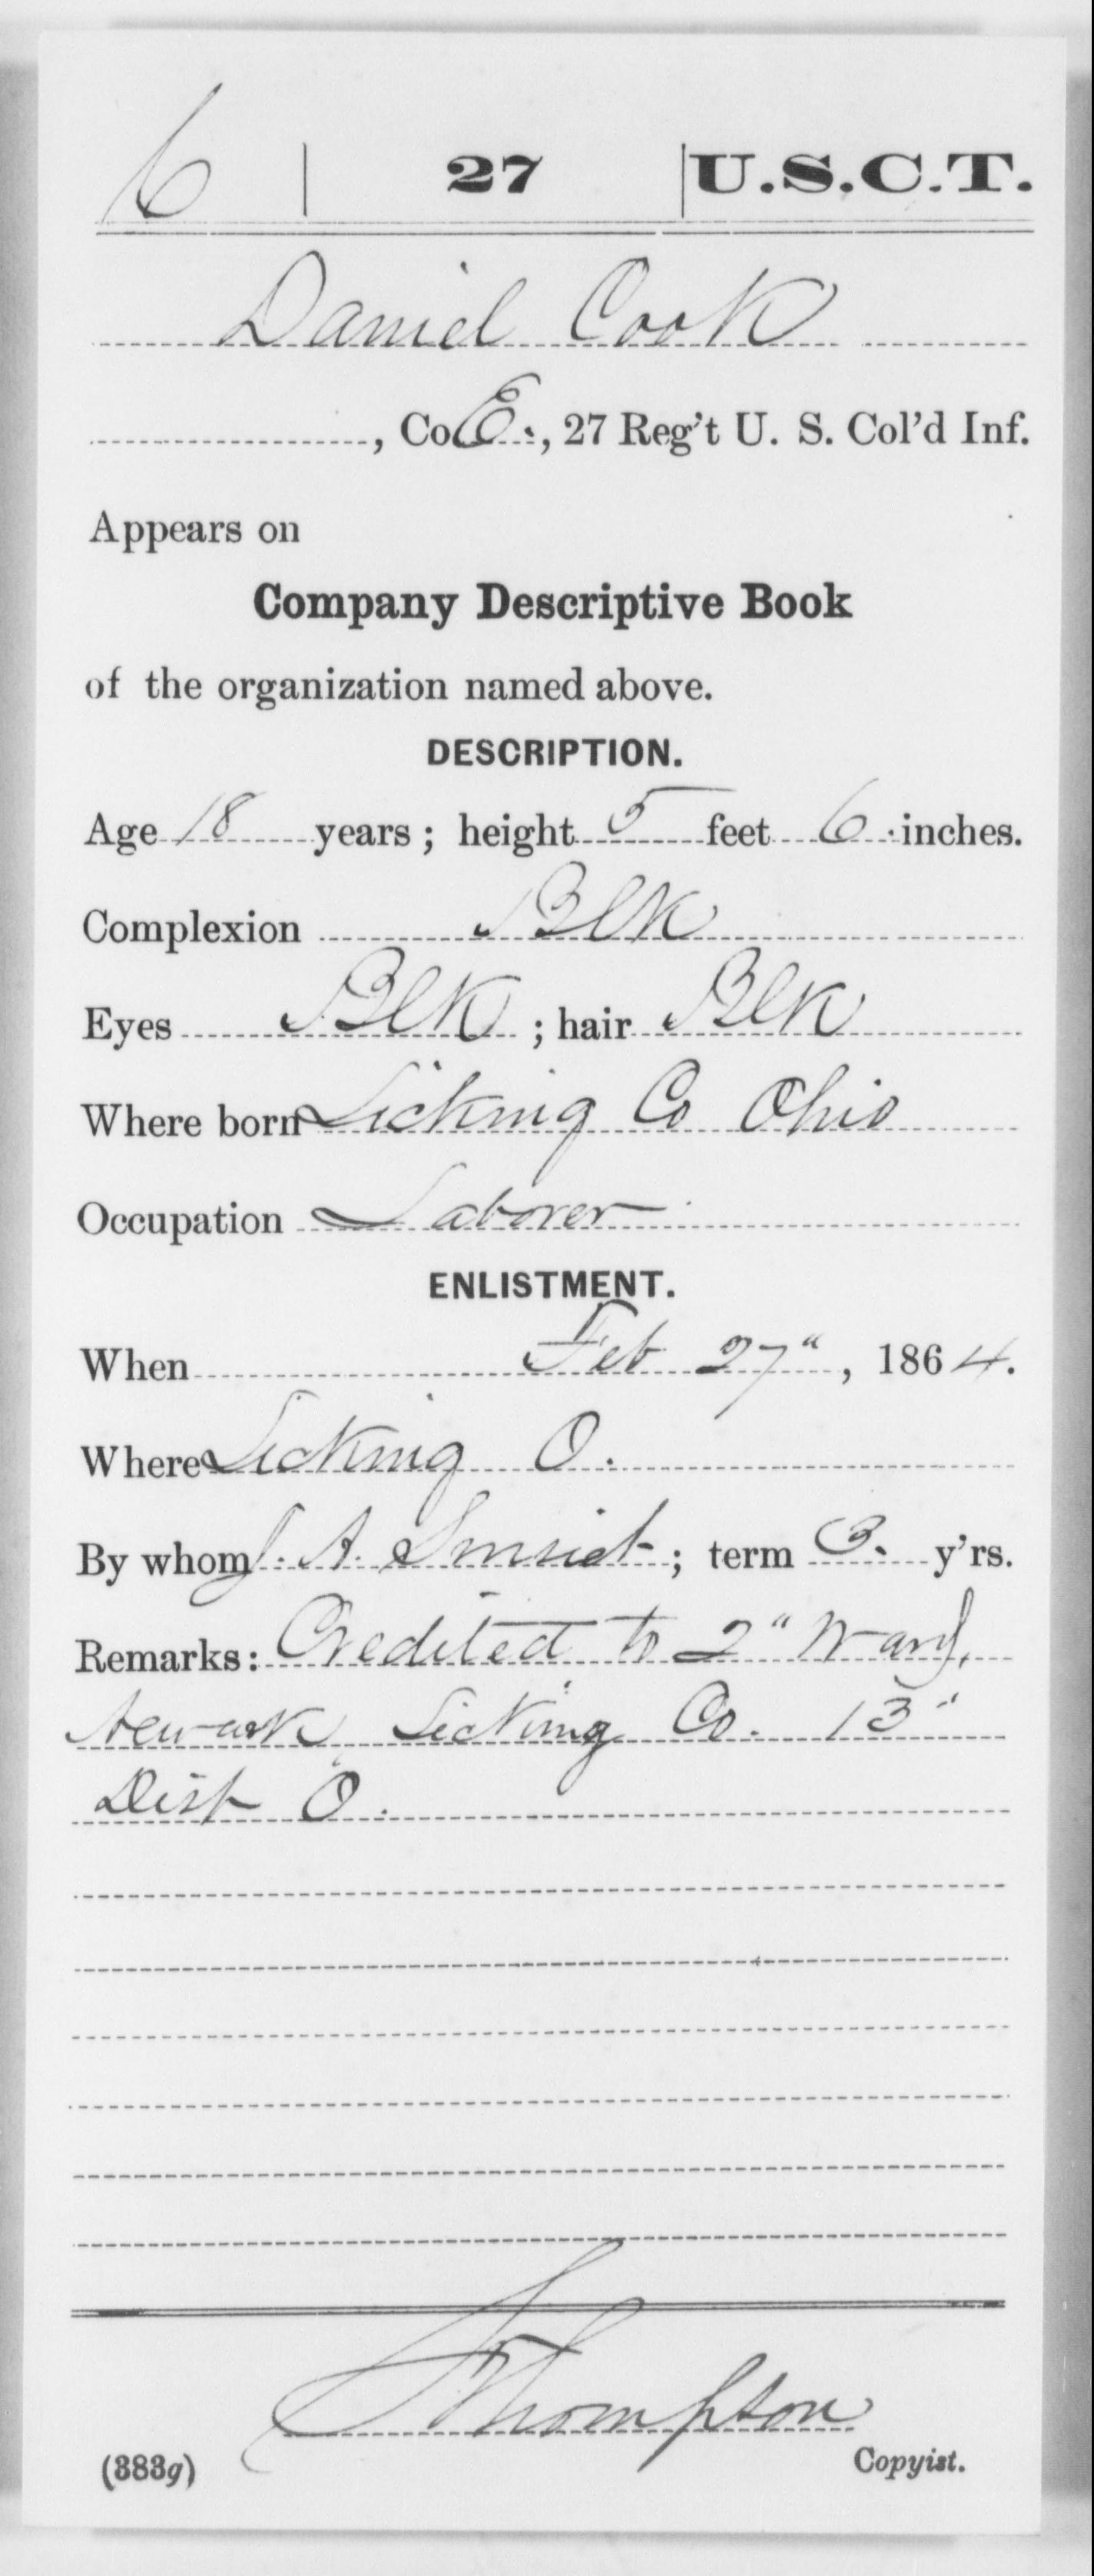 C | 27 | U.S.C.T.
Daniel Cook
, Co. E., 27 Reg't U. S. Col'd Inf.
Appears on
Company Descriptive Book
of the organization named above.
DESCRIPTION.
Age 18 years; height 5 feet 6 inches.
Complexion Blk
Eyes Blk; hair Blk
Where born Licking Co Ohio
Occupation Laborer
ENLISTMENT.
When Feb 27", 1864.
Where Licking O.
By whom J. A. ; term 3. y'rs.
Remarks: Credited to 2" Ward,
Newark Licking Co. 13"
Dist O.
Thompson
(383g) Copyist.